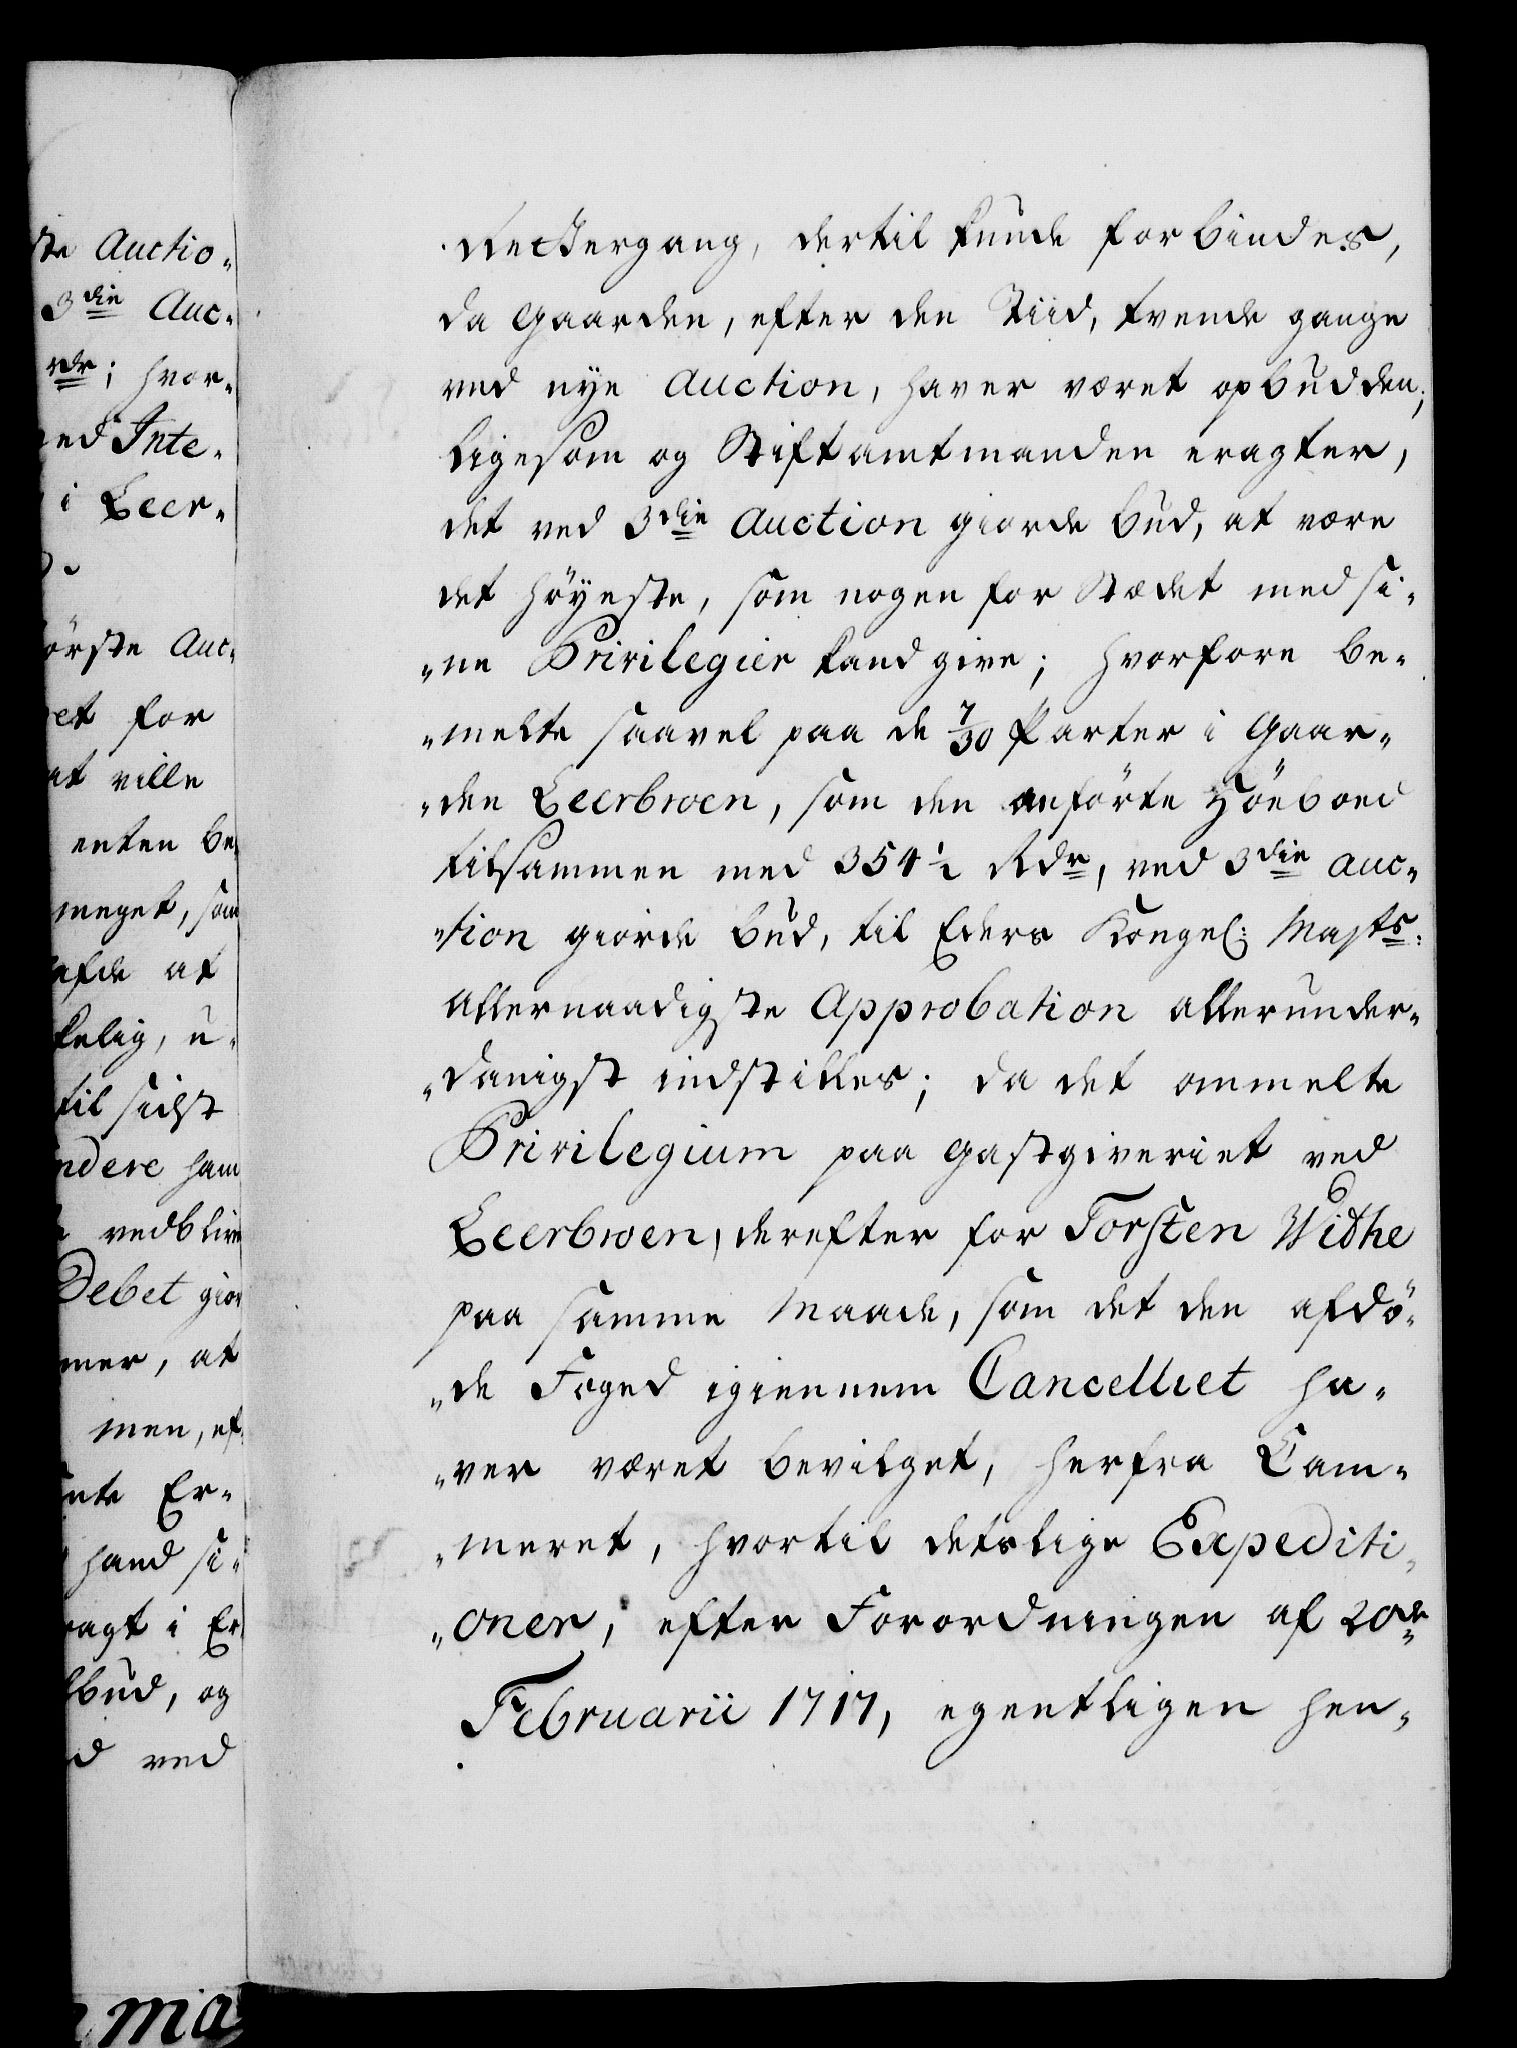 ste Auctio-
3die Auc-
rdr; hvor-
ed Inte-
i Leer-
örste Auc-
et for
at ville
enten be
meget, som
afde at
kelig, u-
til sidst
ndere ham
vedblive
Debet gior
mer, at
men, ef-
nte Er-
hand si-
ragt i Er
bud, og
d ved
ma
Rettergang, dertil kunde forbindes,
da Gaarden, efter den Tiid, tvende gange
ved nye Auction, haver været opbudden;
ligesom og Stiftamtmanden eragter,
det ved 3die Auction giorde bud, at være
det höyeste, som nogen for Stædet med si-
"ne Privilegier kand give; hvorfore be-
"melte saavel paa de 7/30 Parter i Gaar-
"den Leerbroen, som den anförte Höeboed
tilsammen med 354 1/2 Rdr, ved 3die Auc-
"tion giorde bud, til Eders Kongel: Majts.
Allernaadigste Approbation allerunder-
"danigst indstilles; da det ommelte
Privilegium paa Gastgiveriet ved
Leerbroen, derefter for Torsten Widhe
paa samme Maade, som det den afdö-
"de Foged igiennem Cancelliet ha-
"ver været bevilget, herfra Cam-
"meret, hvortil detslige Expediti-
"oner, efter Forordningen af 20de
Februarii 1717, egentligen hen-